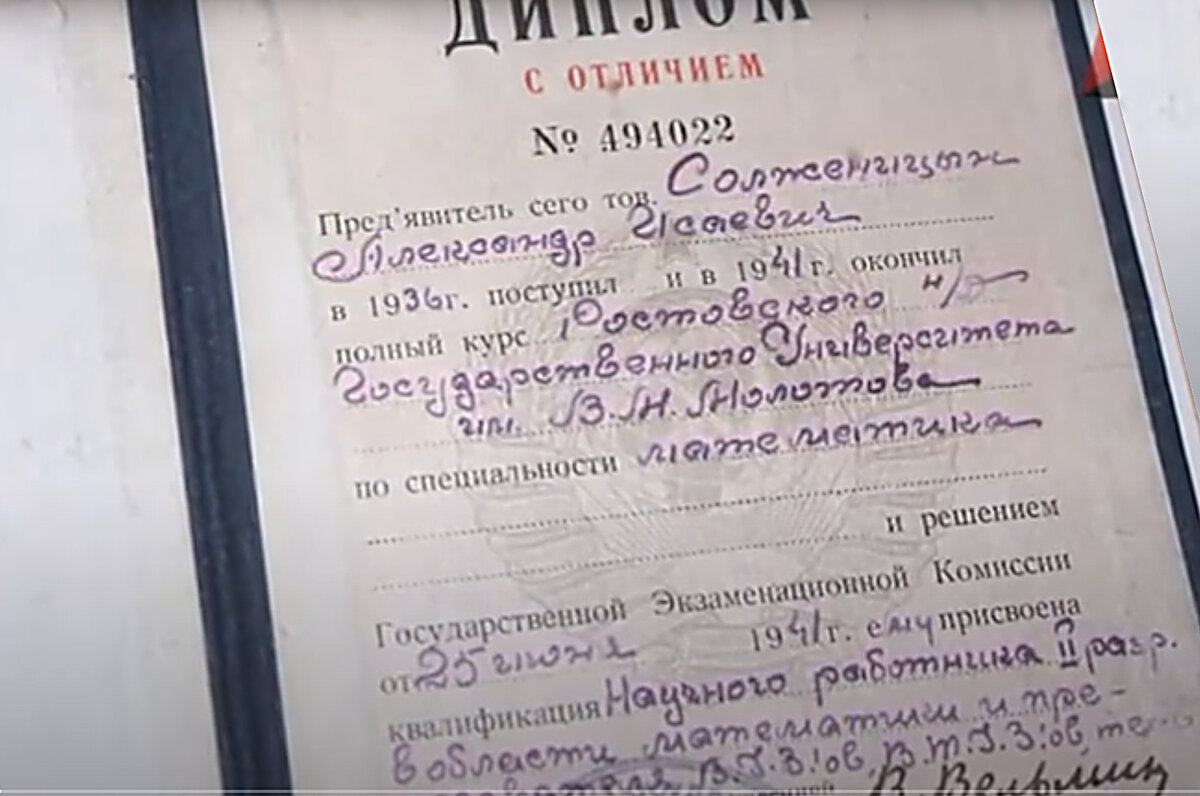 ДИПЛОМ
С ОТЛИЧИЕМ
№ 494022
Пред'явитель сего тов. Солженицын
Александр Исаевич
в 1936 г. поступил и в 1941 г. окончил
полный курс Ростовского н/Д
Государственного Университета
им. В.М. Молотова
по специальности математика
и решением
Государственной Экзаменационной Комиссии
от 25 июня 1941 г. ему присвоена
квалификация Научного работника II разр.
в области математики и пре-
В.У.З!ов, В.Т.У.З!ов, те-